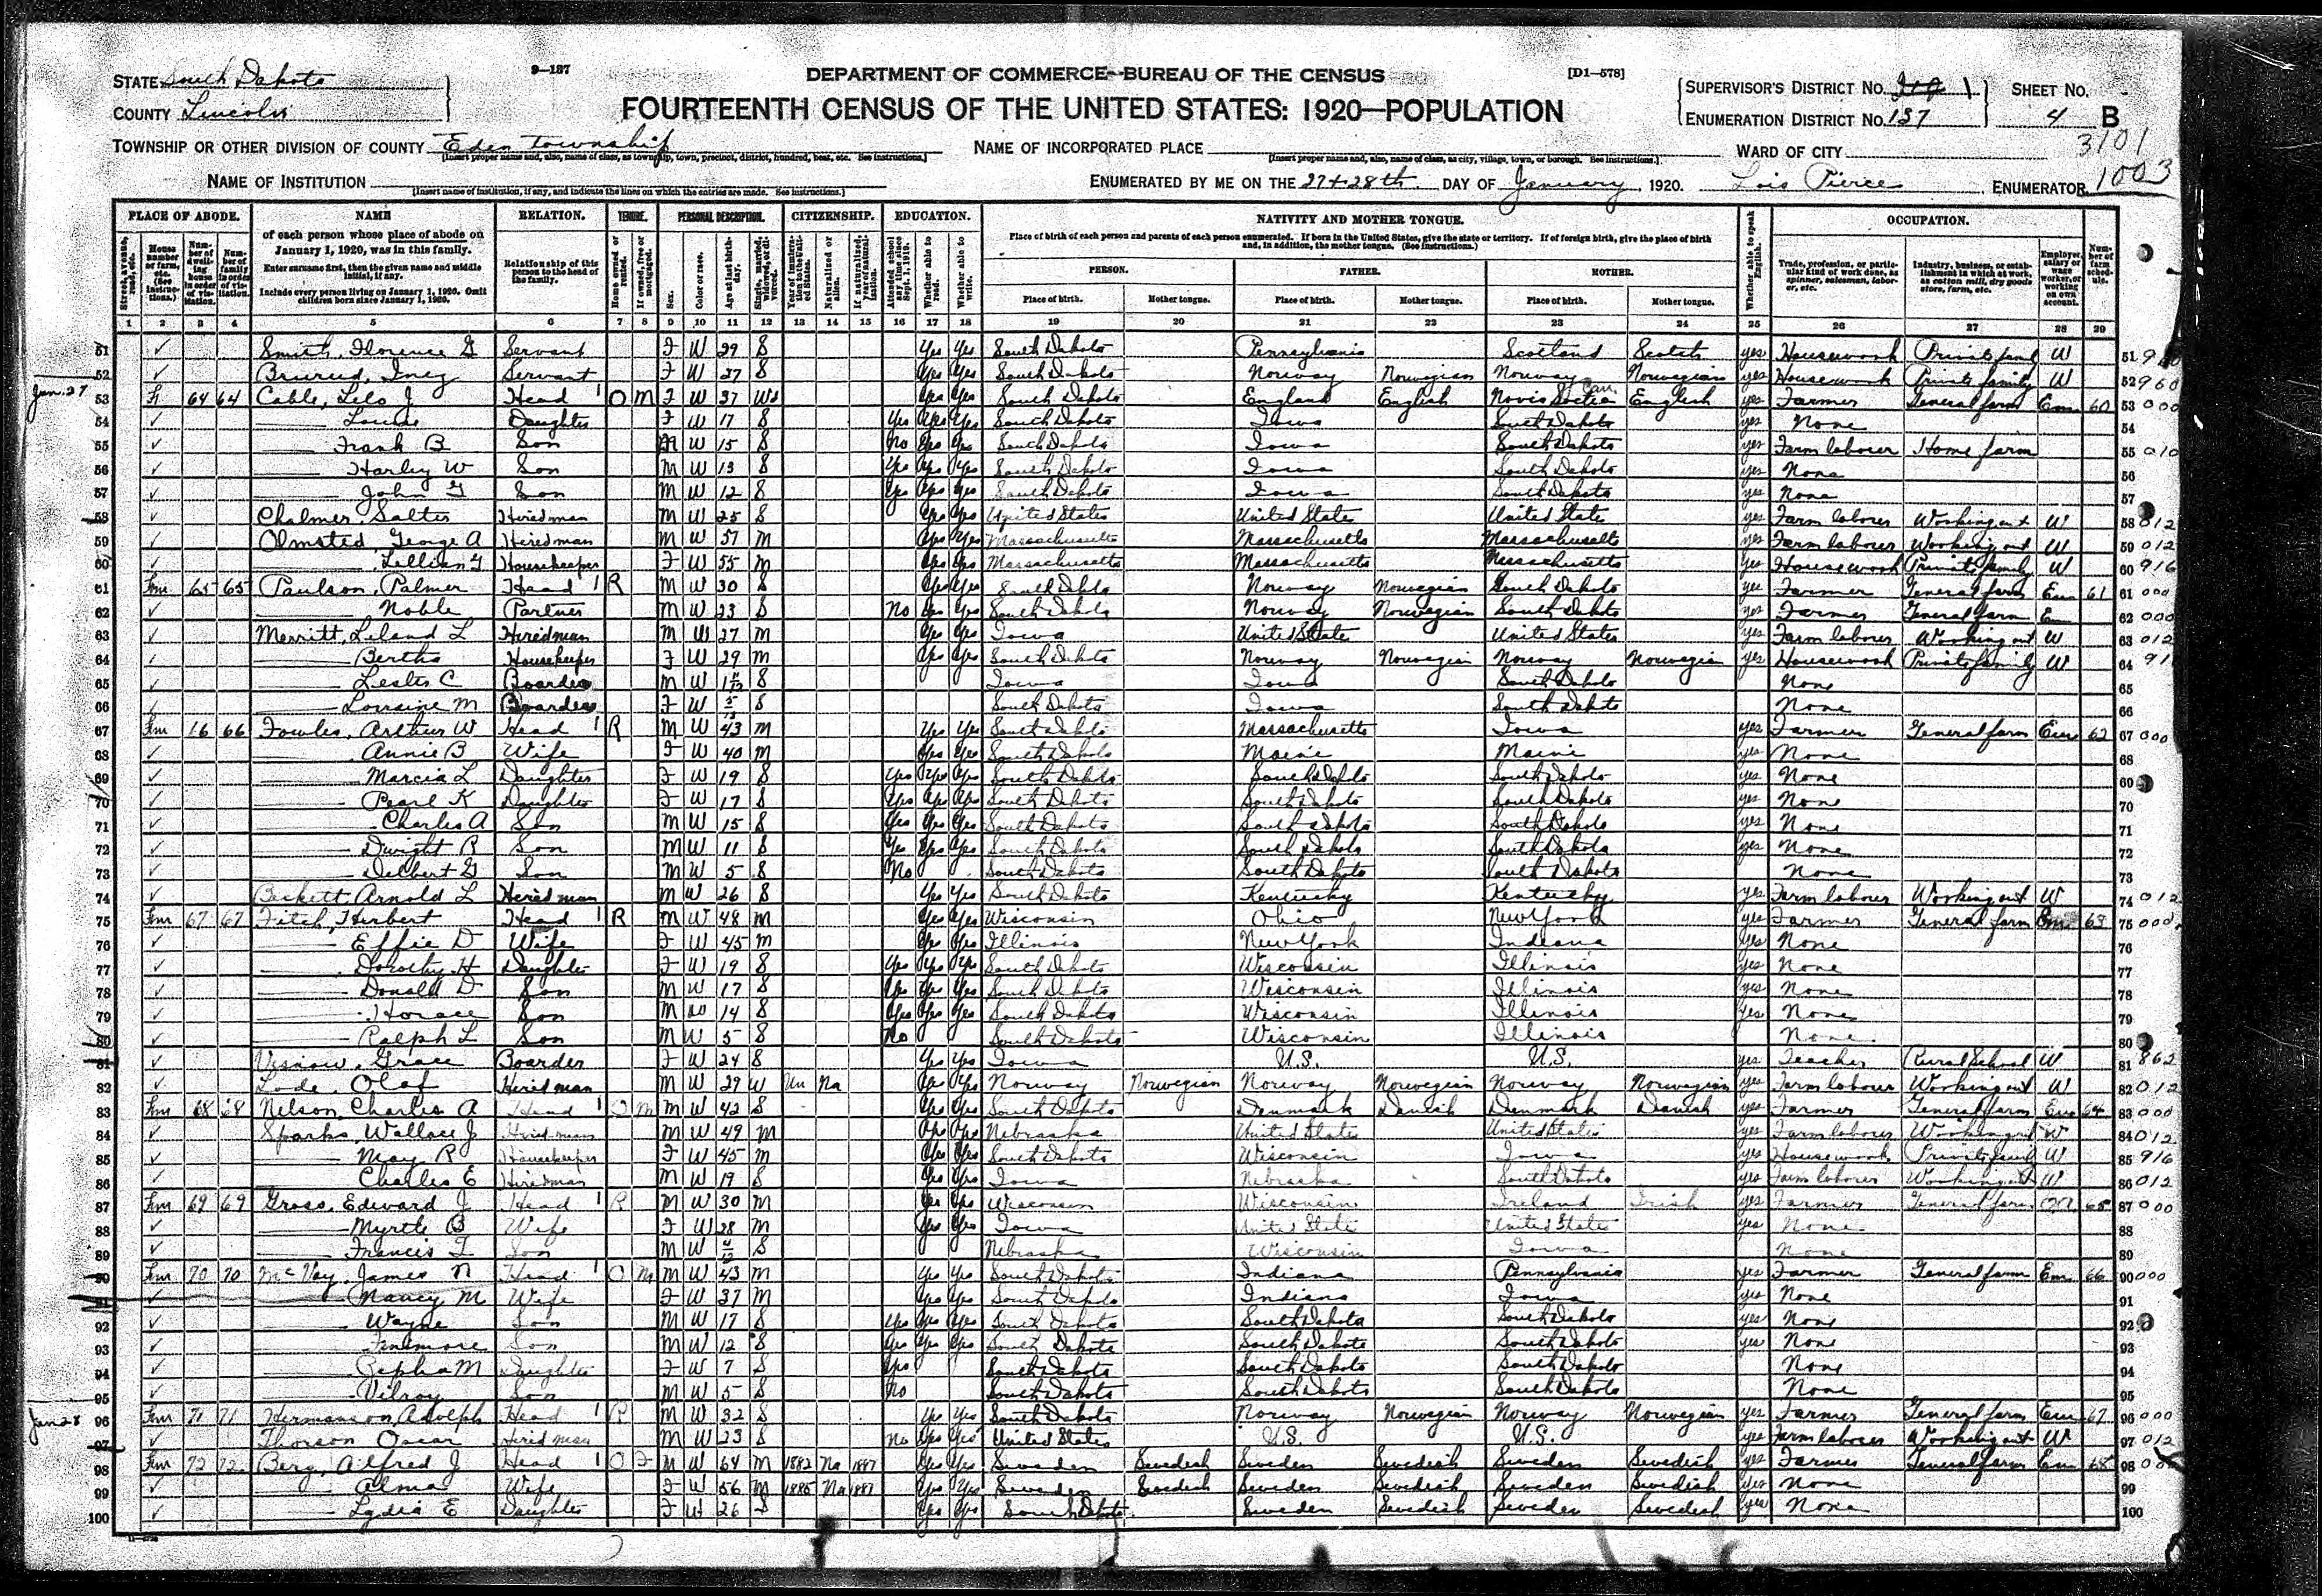 9—137
DEPARTMENT OF COMMERCE—BUREAU OF THE CENSUS
[D1—578]
STATE South Dakota
COUNTY Lincoln
FOURTEENTH CENSUS OF THE UNITED STATES: 1920—POPULATION
SUPERVISOR'S DISTRICT No. 1
ENUMERATION DISTRICT No. 137
SHEET No. 4 B
3101
1003
TOWNSHIP OR OTHER DIVISION OF COUNTY Eden township
[Insert proper name and, also, name of class, as township, town, precinct, district, hundred, beat, etc. See instructions.]
NAME OF INCORPORATED PLACE
[Insert proper name and, also, name of class, as city, village, town, or borough. See instructions.]
WARD OF CITY
NAME OF INSTITUTION
[Insert name of institution, if any, and indicate the lines on which the entries are made. See instructions.]
ENUMERATED BY ME ON THE 27+28th DAY OF January, 1920. Lois Pierce, ENUMERATOR.
PLACE OF ABODE. NAME RELATION. TENURE. PERSONAL DESCRIPTION. CITIZENSHIP. EDUCATION. NATIVITY AND MOTHER TONGUE. OCCUPATION.
of each person whose place of abode on January 1, 1920, was in this family.
Enter surname first, then the given name and middle initial, if any.
Include every person living on January 1, 1920. Omit children born since January 1, 1920.
Relationship of this person to the head of the family.
Place of birth of each person and parents of each person enumerated. If born in the United States, give the state or territory. If of foreign birth, give the place of birth and, in addition, the mother tongue. (See instructions.)
PERSON. FATHER. MOTHER.
Place of birth. Mother tongue. Place of birth. Mother tongue. Place of birth. Mother tongue.
1 2 3 4 5 6 7 8 9 10 11 12 13 14 15 16 17 18 19 20 21 22 23 24 25 26 27 28 29
51 Smith, Florence G Servant F W 29 S Yes Yes South Dakota Pennsylvania Scotland Scotch yes Housework Private family W
52 Servant F W 27 S Yes Yes South Dakota Norway Norwegian Norway Norwegian yes Housework Private family W 960
Jan. 27
53 64 64 Cable, Lelo J Head 1 O M F W 37 Wd Yes Yes South Dakota England English Novia Scotia Can. English yes Farmer General farm Em 60 000
54 Louise Daughter F W 17 S Yes Yes Yes South Dakota Iowa South Dakota yes None
55 Frank B Son M W 15 S No Yes Yes South Dakota Iowa South Dakota yes Farm laborer Home farm 010
56 Harley W Son M W 13 S Yes Yes Yes South Dakota Iowa South Dakota yes None
57 John Son M W 12 S Yes Yes Yes South Dakota Iowa South Dakota yes None
58 Chalmer, Salter Hired man M W 25 S Yes Yes United States United States United States yes Farm laborer Working out W 012
59 Olmsted, George A Hired man M W 57 M Yes Yes Massachusetts Massachusetts Massachusetts yes Farm laborer Working out W 012
60 Lillian F Housekeeper F W 55 M Yes Yes Massachusetts Massachusetts Massachusetts yes Housework Private family W 916
61 Fm 65 65 Paulson, Palmer Head 1 R M W 30 S Yes Yes South Dakota Norway Norwegian South Dakota yes Farmer General farm Em 61 000
62 Noble Partner M W 23 S No Yes Yes South Dakota Norway Norwegian South Dakota yes Farmer General farm Em 000
63 Merritt, Leland L Hired man M W 27 M Yes Yes Iowa United State United States yes Farm laborer Working out W 012
64 Bertha Housekeeper F W 29 M Yes Yes South Dakota Norway Norwegian Norway Norwegian yes Housework Private family W 91
65 Lester C Boarder M W S Iowa Iowa South Dakota None
66 Lorraine M Boarder F W S South Dakota Iowa South Dakota None
67 Fm 16 66 Fowles, Arthur W Head 1 R M W 43 M Yes Yes South Dakota Massachusetts Iowa yes Farmer General farm Em 62 000
68 Annie B Wife F W 40 M Yes Yes South Dakota Maine Maine yes None
69 Marcia L Daughter F W 19 S Yes Yes Yes South Dakota South Dakota South Dakota yes None
70 Pearl K Daughter F W 17 S Yes Yes Yes South Dakota South Dakota South Dakota yes None
71 Charles A Son M W 15 S Yes Yes Yes South Dakota South Dakota South Dakota yes None
72 Dwight R Son M W 11 S Yes Yes Yes South Dakota South Dakota South Dakota yes None
73 Delbert G Son M W 5 S No South Dakota South Dakota South Dakota None
74 Beckett, Arnold L Hired man M W 26 S Yes Yes South Dakota Kentucky Kentucky yes Farm laborer Working out W 012
75 Fm 67 67 Fitch, Herbert Head 1 R M W 48 M Yes Yes Wisconsin Ohio New York yes Farmer General farm Em 63 000
76 Effie D Wife F W 45 M Yes Yes Illinois New York Indiana yes None
77 Dorothy H Daughter F W 19 S Yes Yes Yes South Dakota Wisconsin Illinois yes None
78 Donald D Son M W 17 S Yes Yes Yes South Dakota Wisconsin Illinois yes None
79 Horace Son M W 14 S Yes Yes Yes South Dakota Wisconsin Illinois yes None
80 Ralph L Son M W 5 S No South Dakota Wisconsin Illinois None
81 Grace Boarder F W 24 S Yes Yes Iowa U.S. U.S. yes Teacher Rural School W 862
82 Lode, Olaf Hired man M W 29 W Un Na Yes Yes Norway Norwegian Norway Norwegian Norway Norwegian yes Farm laborer Working out W 012
83 Fm 68 68 Nelson, Charles A Head 1 O M M W 42 S Yes Yes South Dakota Denmark Danish Denmark Danish yes Farmer General farm Em 64 000
84 Sparks, Wallace J Hired man M W 49 M Yes Yes Nebraska United State United States yes Farm laborer Working out W 012
85 May R Housekeeper F W 45 M Yes Yes South Dakota Wisconsin Iowa yes Housework Private family W 916
86 Charles E Hired man M W 19 S Yes Yes Iowa Nebraska South Dakota yes Farm laborer Working out W 012
87 Fm 69 69 Gross, Edward J Head 1 R M W 30 M Yes Yes Wisconsin Wisconsin Ireland Irish yes Farmer General farm OA 65 000
88 Myrtle B Wife F W 28 M Yes Yes Iowa United State United States yes None
89 Francis Son M W S Nebraska Wisconsin Iowa None
90 Fm 70 70 McVay, James N Head 1 O M M W 43 M Yes Yes South Dakota Indiana Pennsylvania yes Farmer General farm Em 66 000
91 Nancy M Wife F W 37 M Yes Yes South Dakota Indiana Iowa yes None
92 Wayne Son M W 17 S Yes Yes Yes South Dakota South Dakota South Dakota yes None
93 Son M W 12 S Yes Yes Yes South Dakota South Dakota South Dakota yes None
94 Daughter F W 7 S Yes South Dakota South Dakota South Dakota None
95 Vilroy Son M W 5 S No South Dakota South Dakota South Dakota None
Jan 28
96 Fm 71 71 Hermanson, Adolph Head 1 R M W 32 S Yes Yes South Dakota Norway Norwegian Norway Norwegian yes Farmer General farm Em 67 000
97 Thorson Oscar Hired man M W 23 S No Yes Yes United States U.S. U.S. yes Farm laborer Working out W 012
98 Fm 72 72 Berg, Alfred J Head 1 O F M W 64 M 1882 Na 1887 Yes Yes Sweden Swedish Sweden Swedish Sweden Swedish yes Farmer General farm Em 68
99 Alma Wife F W 56 M 1885 Na 1887 Yes Yes Sweden Swedish Sweden Swedish Sweden Swedish yes None
100 Lydia E Daughter F W 26 S Yes Yes South Dakota Sweden Swedish Sweden Swedish yes None